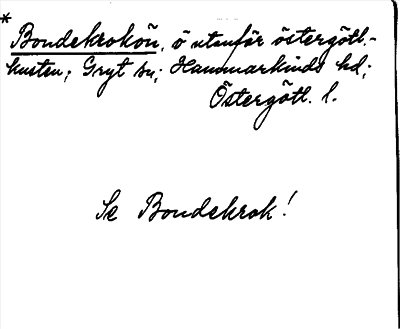 *
Bondekrokön, ö utanför östergötl.-
kusten; Gryt sn; Hammarkinds hd;
Östergötl. l.
Se Bondekrok!